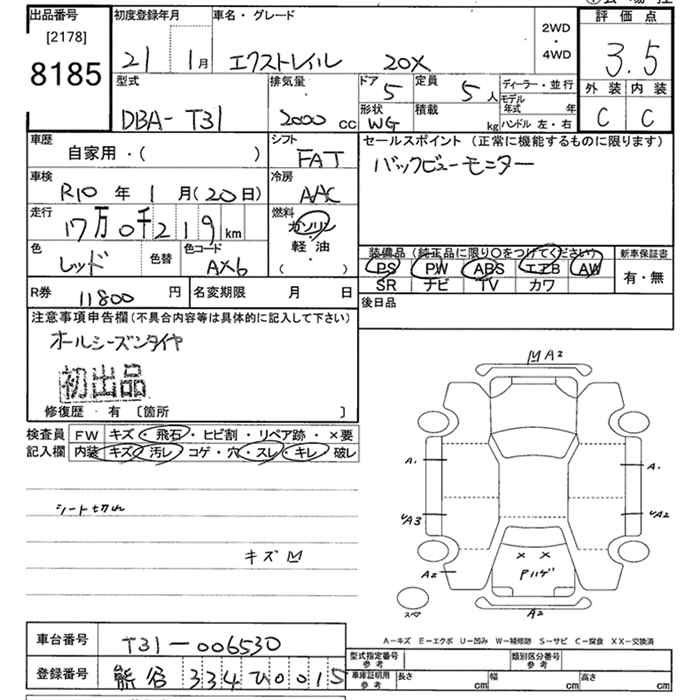 出品番号
[2178]
8185
初度登録年月
21 1月
車名・グレード
エクストレイル 20X
2WD
・
4WD
評価点
3.5
外装 内装
C C
型式
DBA-T31
排気量
2000 CC
ドア
5
定員
5人
形状
WG
積載
kg
ディーラー・並行
モデル年式 年
ハンドル 左・右
車歴
自家用・( )
シフト
FAT
車検
R10年1月(20日)
冷房
AAC
走行
17万0千219km
燃料
ガソリン
軽油
( )
色
レッド
色替
色コード
AX6
セールスポイント(正常に機能するものに限ります)
バックビューモニター
装備品(純正品に限り○をつけてください)
PS PW ABS エアB AW
SR ナビ TV カワ
新車保証書
有・無
R券
11800円
名変期限 月 日
後日品
注意事項申告欄(不具合内容等は具体的に記入して下さい)
オールシーズンタイヤ
初出品
修復歴・有 〔箇所 〕
検査員記入欄
FW キズ・飛石・ヒビ割・リペア跡・×要
内装 キズ・汚レ・コゲ・穴・スレ・キレ・破レ
シート切れ
キズ凹
凹A2
A1
A1
UA3
UA2
A2
Pハゲ
スペア
A2
A-キズ E-エクボ U-凹み W-補修跡 S-サビ C-腐食 XX-交換済
車台番号
T31-006530
登録番号
熊谷 334 ひ 0015
型式指定番号 参考
類別区分番号 参考
車庫証明用 参考
長さ cm
幅 cm
高さ cm